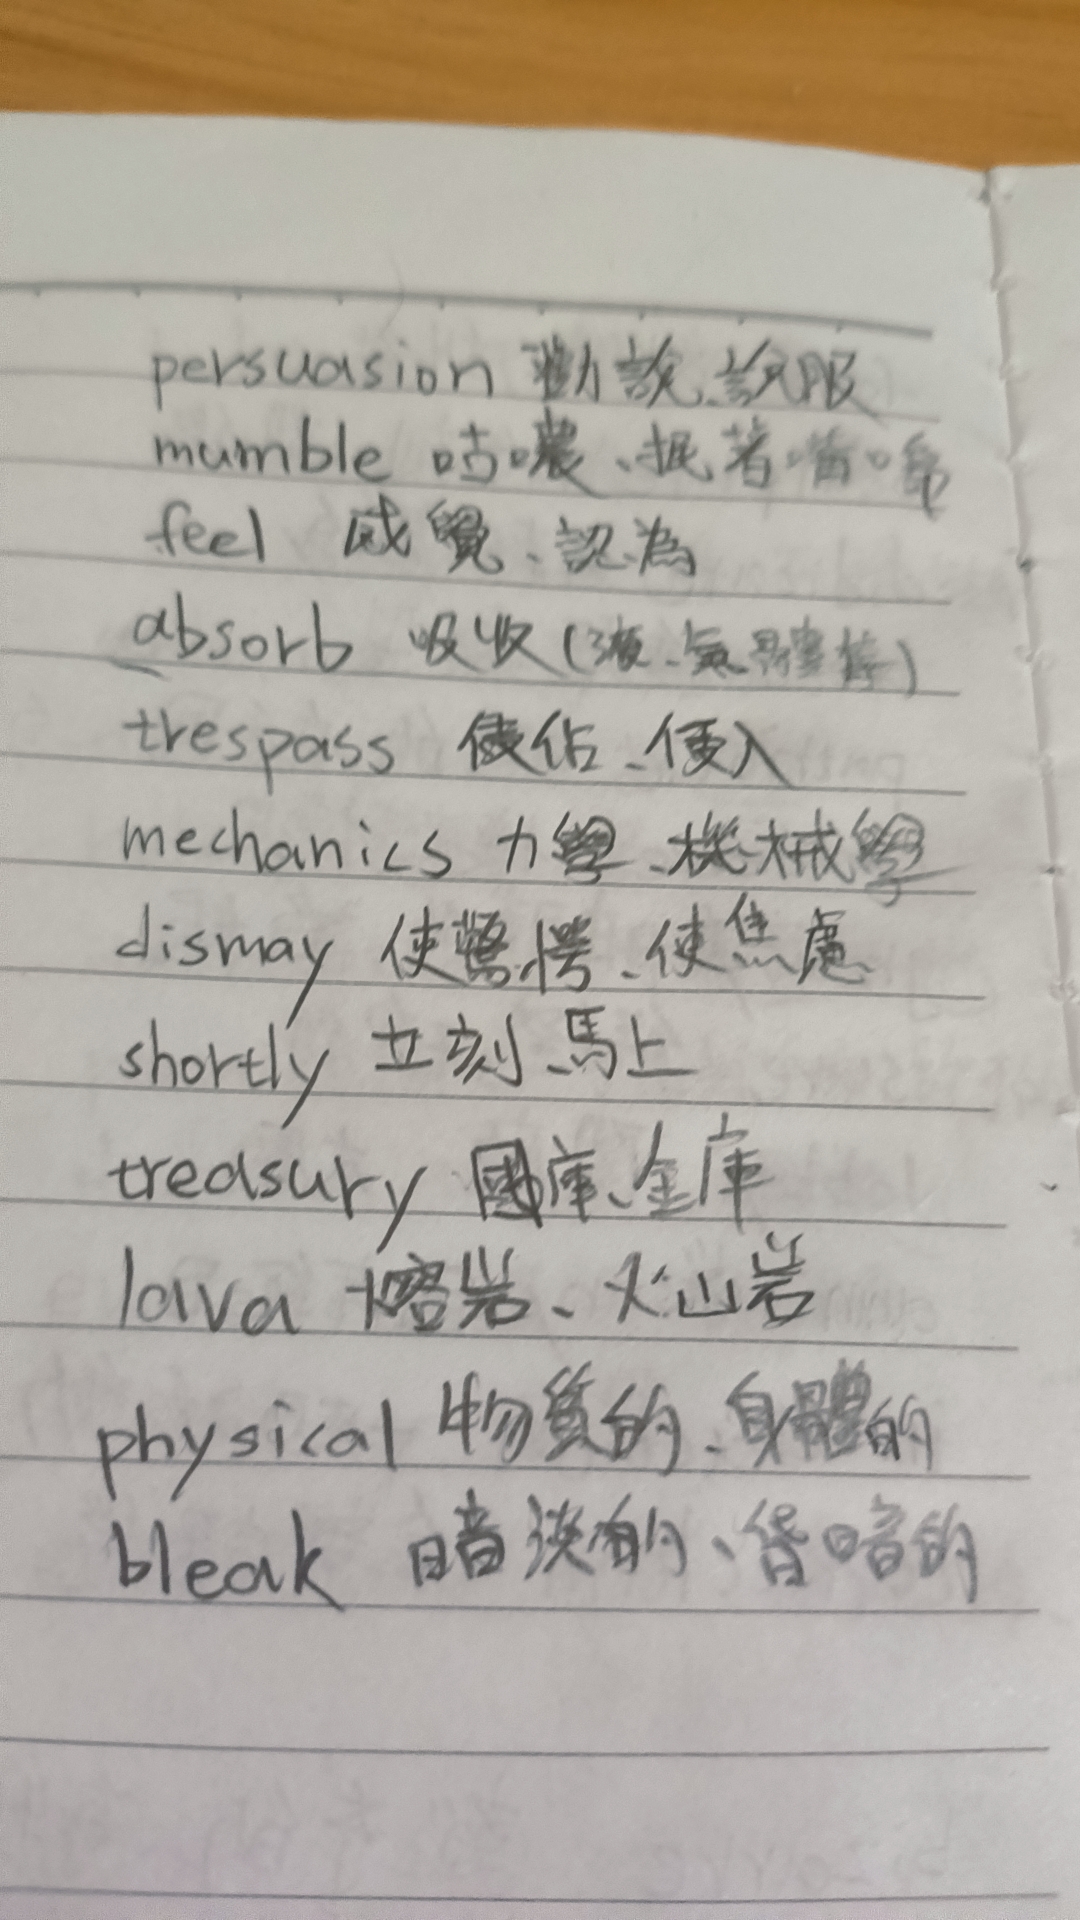 persuasion 勸說、說服
mumble 咕噥、抿著嘴
feel 感覺、認為
absorb 吸收(液、氣體等)
trespass 侵佔、侵入
mechanics 力學、機械學
dismay 使驚愕、使焦慮
shortly 立刻、馬上
treasury 國庫、金庫
lava 熔岩、火山岩
physical 物質的、身體的
bleak 暗淡的、昏暗的